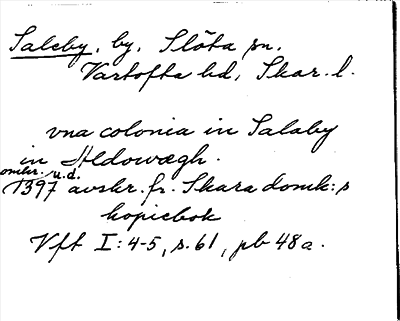 Saleby, by, Slöta sn.
Vartofta hd, Skar. l.
vna colonia in Salaby
in Hldowægh.
omkr. u.d.
1397 avskr. fr. Skara domk:s
kopiebok
Vft I: 4-5, s. 61, pb 48a.